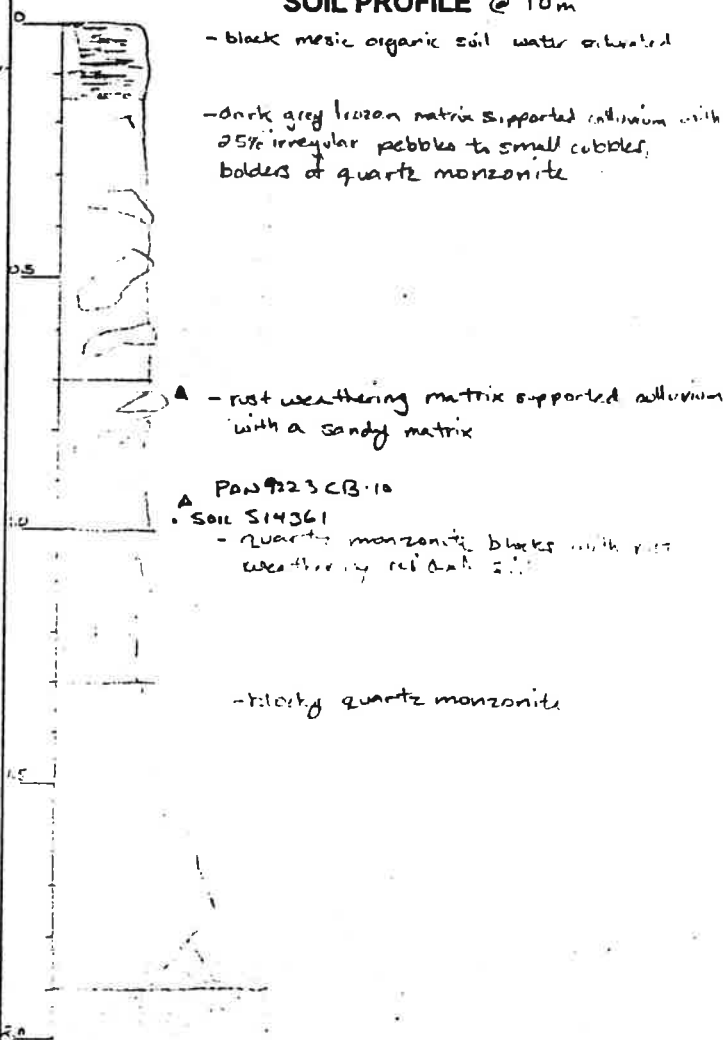 SOIL PROFILE @ 10m
0
- black mesic organic soil water saturated
- dark grey frozen matrix supported colluvium with
25% irregular pebbles to small cobbles,
bolders of quartz monzonite
0.5
- rust weathering matrix supported colluvium
with a sandy matrix
PDN9223CB-10
1.0
• SOIL S14361
- quartz monzonite blocks with rust
weathering
- blocky quartz monzonite
1.5
2.0